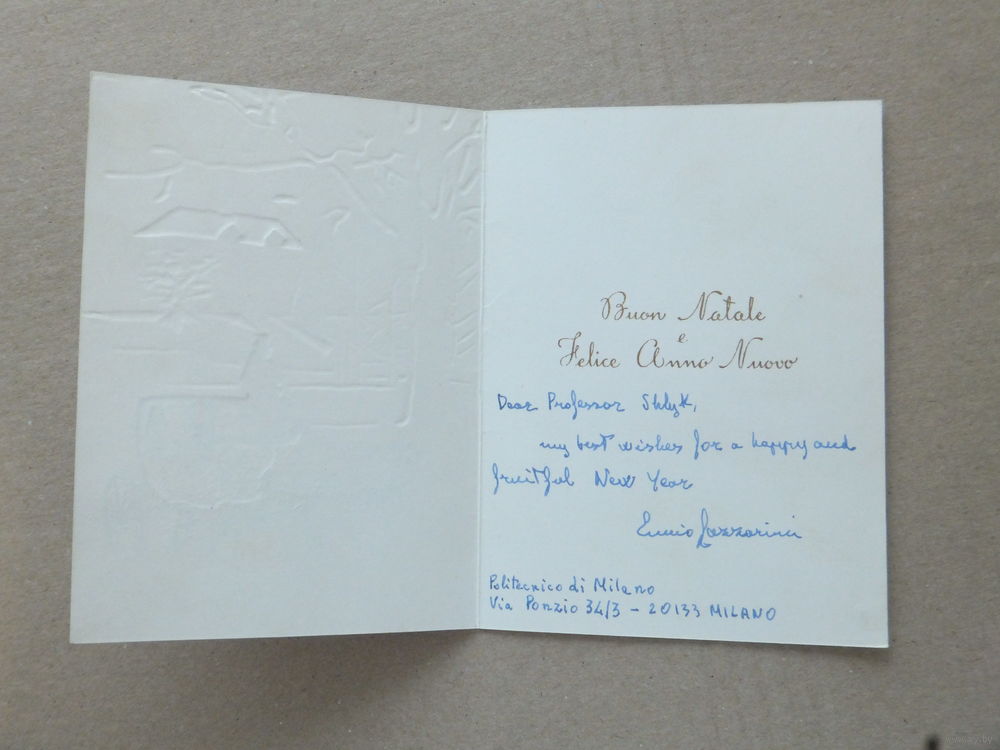 Buon Natale
e
Felice Anno Nuovo
Dear Professor Shlyk,
my best wishes for a happy and
fruitful New Year
Ennio Lazzarini
Politecnico di Milano
Via Ponzio 34/3 - 20133 MILANO